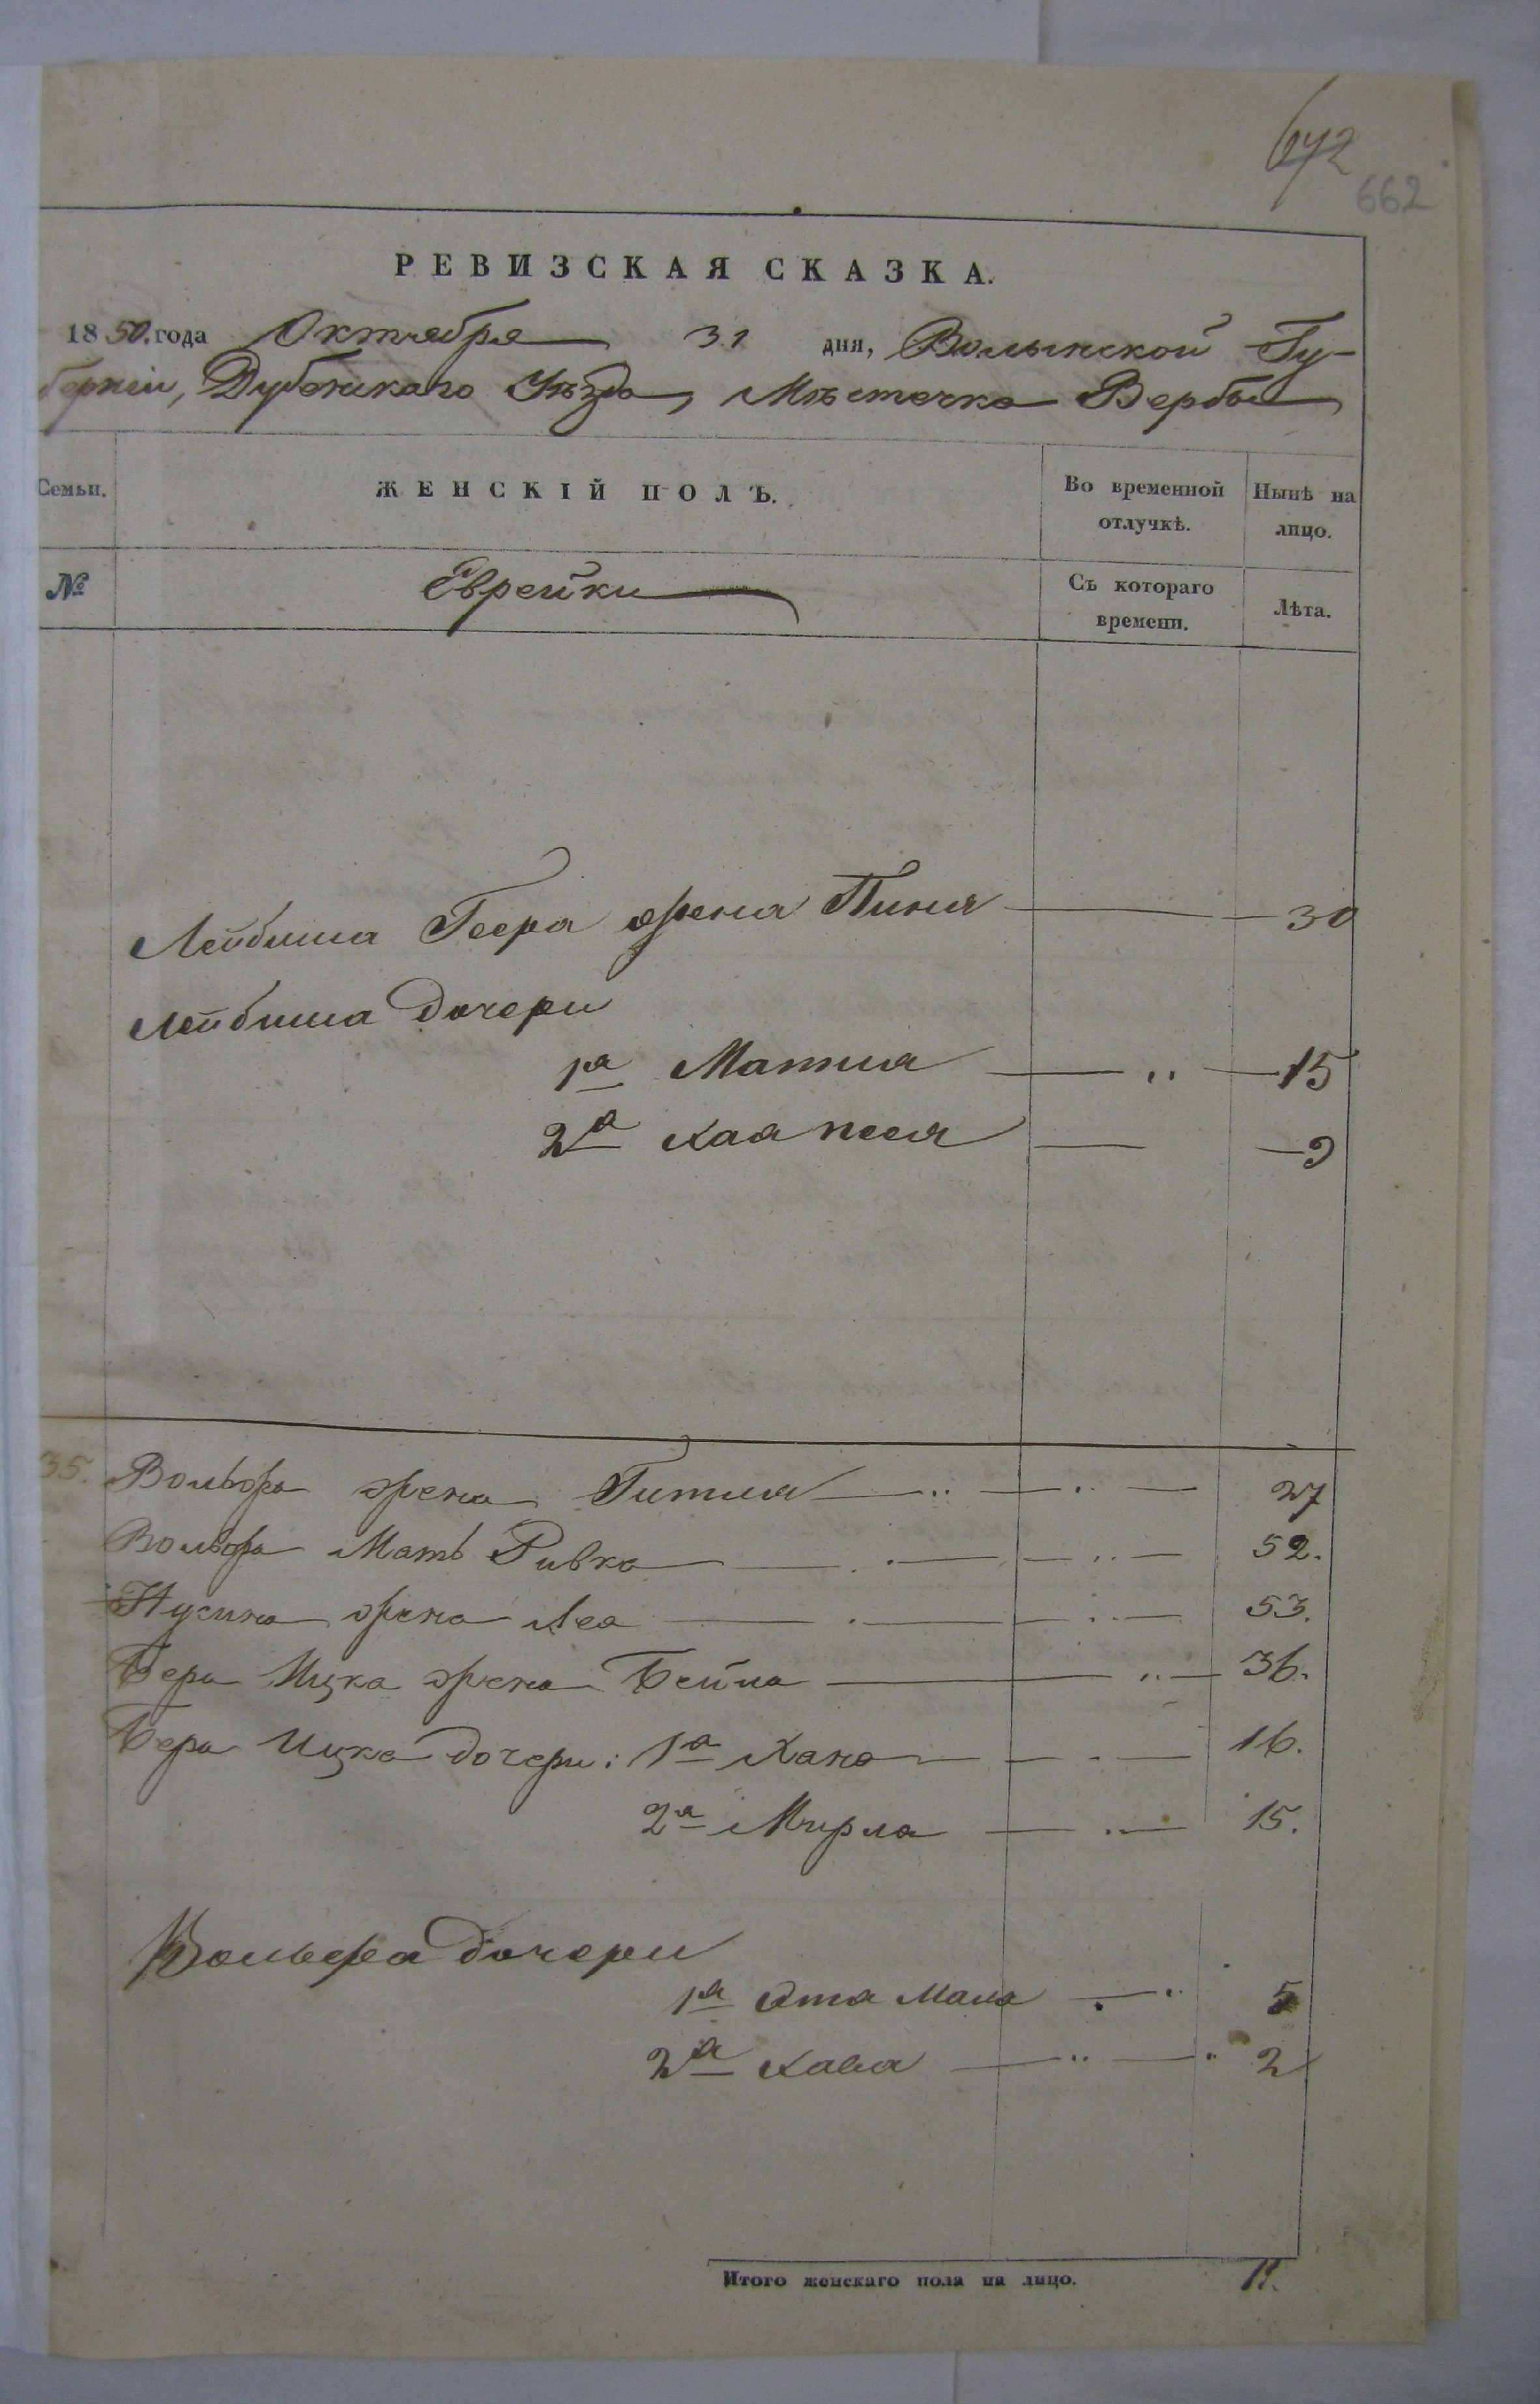 672
662
РЕВИЗСКАЯ СКАЗКА.
1850. года Октября 31 дня, Волынской Гу-
берніи, Дубенскаго Уѣзда, Мѣстечка Вербы
Семьи.
ЖЕНСКІЙ ПОЛЪ.
Во временной отлучкѣ.
Нынѣ на лицо.
№
Еврейки
Съ котораго времени.
Лѣта.
Лейбиша Геера жена Пиня 30
Лейбиша дочери
1а Матля " 15
2а Хая песя 9
35. Вольфа жена Гитля " " 27
Вольфа Мать Ривка " 52.
Нусина жена Лея " 53.
Бера Ицка жена Бейла " 36.
Бера Ицка дочери: 1а Хана 16.
2а Мирла " 15.
Вольфа дочери
1а Ета Мала " 5
2а Хава " " 2
Итого женскаго пола на лицо. 11.